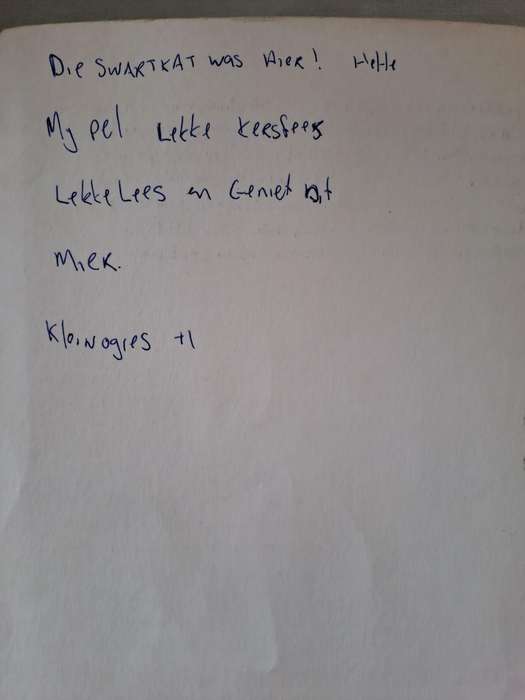 Die SWARTKAT was Hier! HeHe
My pel Lekke Keesfees
Lekke Lees en Geniet Dit
Miek.
Kleinogies +1